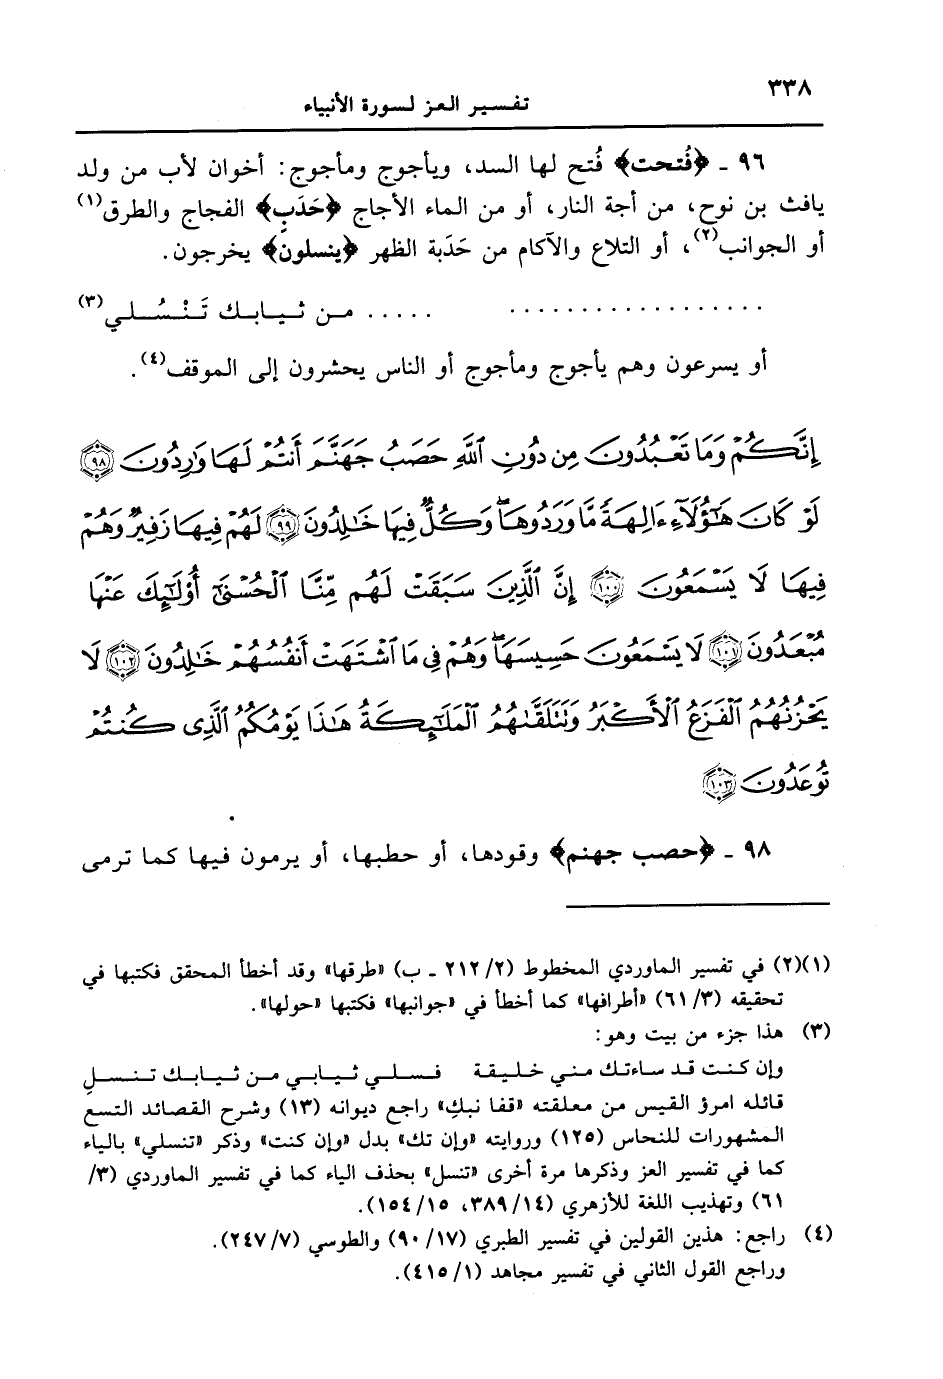 ٣٣٨
تفسير العز لسورة الأنبياء
٩٦ ـ ﴿فُتحت﴾ فُتح لها السد، ويأجوج ومأجوج: أخوان لأب من ولد
يافث بن نوح، من أجة النار، أو من الماء الأجاج ﴿حَدَبٍ﴾ الفجاج والطرق(١)
أو الجوانب(٢)، أو التلاع والآكام من حَدَبة الظهر ﴿ينسلون﴾ يخرجون.
. . . . . . . . . . . . . . . . . . . . . . . من ثيابك تَنْسُلي(٣)
أو يسرعون وهم يأجوج ومأجوج أو الناس يحشرون إلى الموقف(٤).
إِنَّكُمْ وَمَا تَعْبُدُونَ مِن دُونِ ٱللَّهِ حَصَبُ جَهَنَّمَ أَنتُمْ لَهَا وَٰرِدُونَ ٩٨
لَوْ كَانَ هَٰٓؤُلَآءِ ءَالِهَةً مَّا وَرَدُوهَا ۖ وَكُلٌّ فِيهَا خَٰلِدُونَ ٩٩ لَهُمْ فِيهَا زَفِيرٌ وَهُمْ
فِيهَا لَا يَسْمَعُونَ ١٠٠ إِنَّ ٱلَّذِينَ سَبَقَتْ لَهُم مِّنَّا ٱلْحُسْنَىٰٓ أُوْلَٰٓئِكَ عَنْهَا
مُبْعَدُونَ ١٠١ لَا يَسْمَعُونَ حَسِيسَهَا ۖ وَهُمْ فِي مَا ٱشْتَهَتْ أَنفُسُهُمْ خَٰلِدُونَ ١٠٢ لَا
يَحْزُنُهُمُ ٱلْفَزَعُ ٱلْأَكْبَرُ وَتَتَلَقَّىٰهُمُ ٱلْمَلَٰٓئِكَةُ هَٰذَا يَوْمُكُمُ ٱلَّذِى كُنتُمْ
تُوعَدُونَ ١٠٣
٩٨ ـ ﴿حصب جهنم﴾ وقودها، أو حطبها، أو يرمون فيها كما ترمى
(١)(٢) في تفسير الماوردي المخطوط (٢/ ٢١٢ ـ ب) «طرقها» وقد أخطأ المحقق فكتبها في
تحقيقه (٣/ ٦١) «أطرافها» كما أخطأ في «جوانبها» فكتبها «حولها».
(٣) هذا جزء من بيت وهو:
وإن كنت قد ساءتك مني خليقة فسلي ثيابي من ثيابك تنسلِ
قائله امرؤ القيس من معلقته «قفا نبكِ» راجع ديوانه (١٣) وشرح القصائد التسع
المشهورات للنحاس (١٢٥) وروايته «وإن تك» بدل «وإن كنت» وذكر «تنسلي» بالياء
كما في تفسير العز وذكرها مرة أخرى «تنسل» بحذف الياء كما في تفسير الماوردي (٣/
٦١) وتهذيب اللغة للأزهري (١٤/ ٣٨٩، ١٥/ ١٥٤).
(٤) راجع: هذين القولين في تفسير الطبري (١٧/ ٩٠) والطوسي (٧/ ٢٤٧).
وراجع القول الثاني في تفسير مجاهد (١/ ٤١٥).